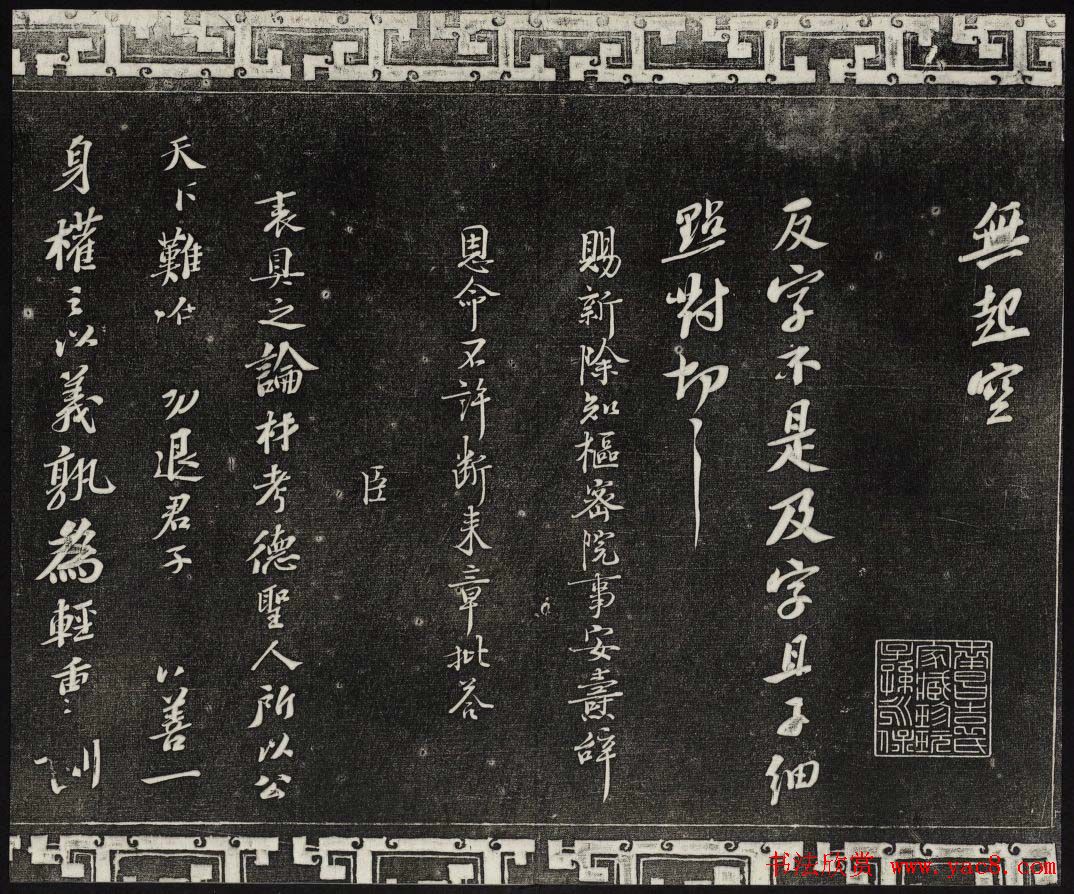 無起空
南昌袁氏
家藏珍玩
子孫永保
反字不是及字且子細
點對切〻
賜新除知樞密院事安燾辭
恩命不許斷來章批答
臣
表具之論材考德聖人所以公
天下難 退君子 以善一
身權之以義孰為輕重
书法欣赏 www.yac8.com